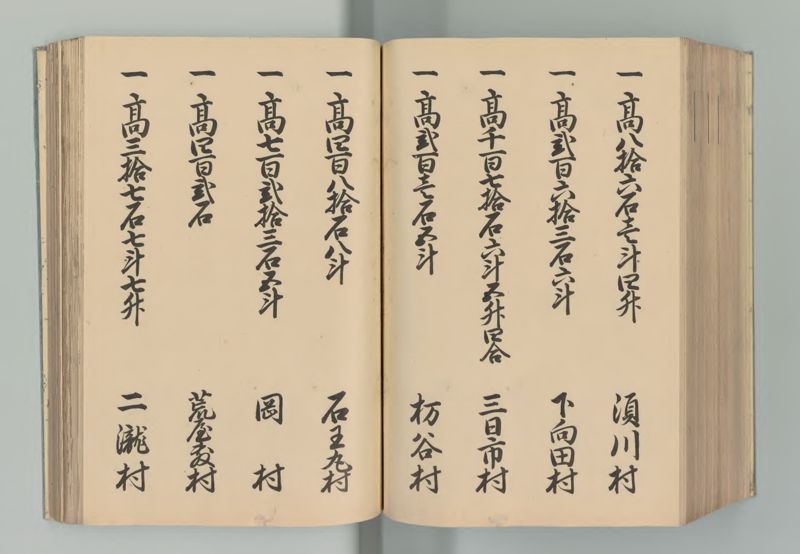 一高八拾六石壱斗四升 須川村
一高弐百六拾三石六斗 下向田村
一高千百七拾石六斗五升四合 三日市村
一高弐百壱石五斗 枋谷村
一高四百八拾石八斗 石王丸村
一高七百弐拾三石五斗 岡村
一高四百弐石 荒屋敷村
一高三拾七石七斗七升 二瀧村